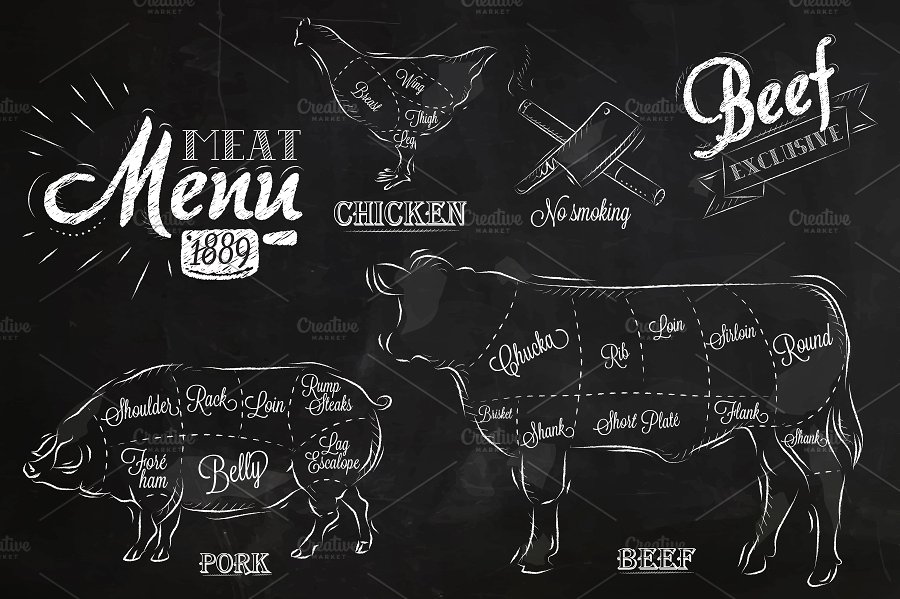 MEAT
Menu
1889
Breast
Wing
Thigh
Leg
CHICKEN
No smoking
Beef
EXCLUSIVE
Shoulder
Rack
Loin
Rump
Steaks
Foré
ham
Belly
Lag
Escalope
PORK
Chucka
Rib
Loin
Sirloin
Round
Brisket
Shank
Short Platé
Flank
Shank
BEEF
Creative
MARKET